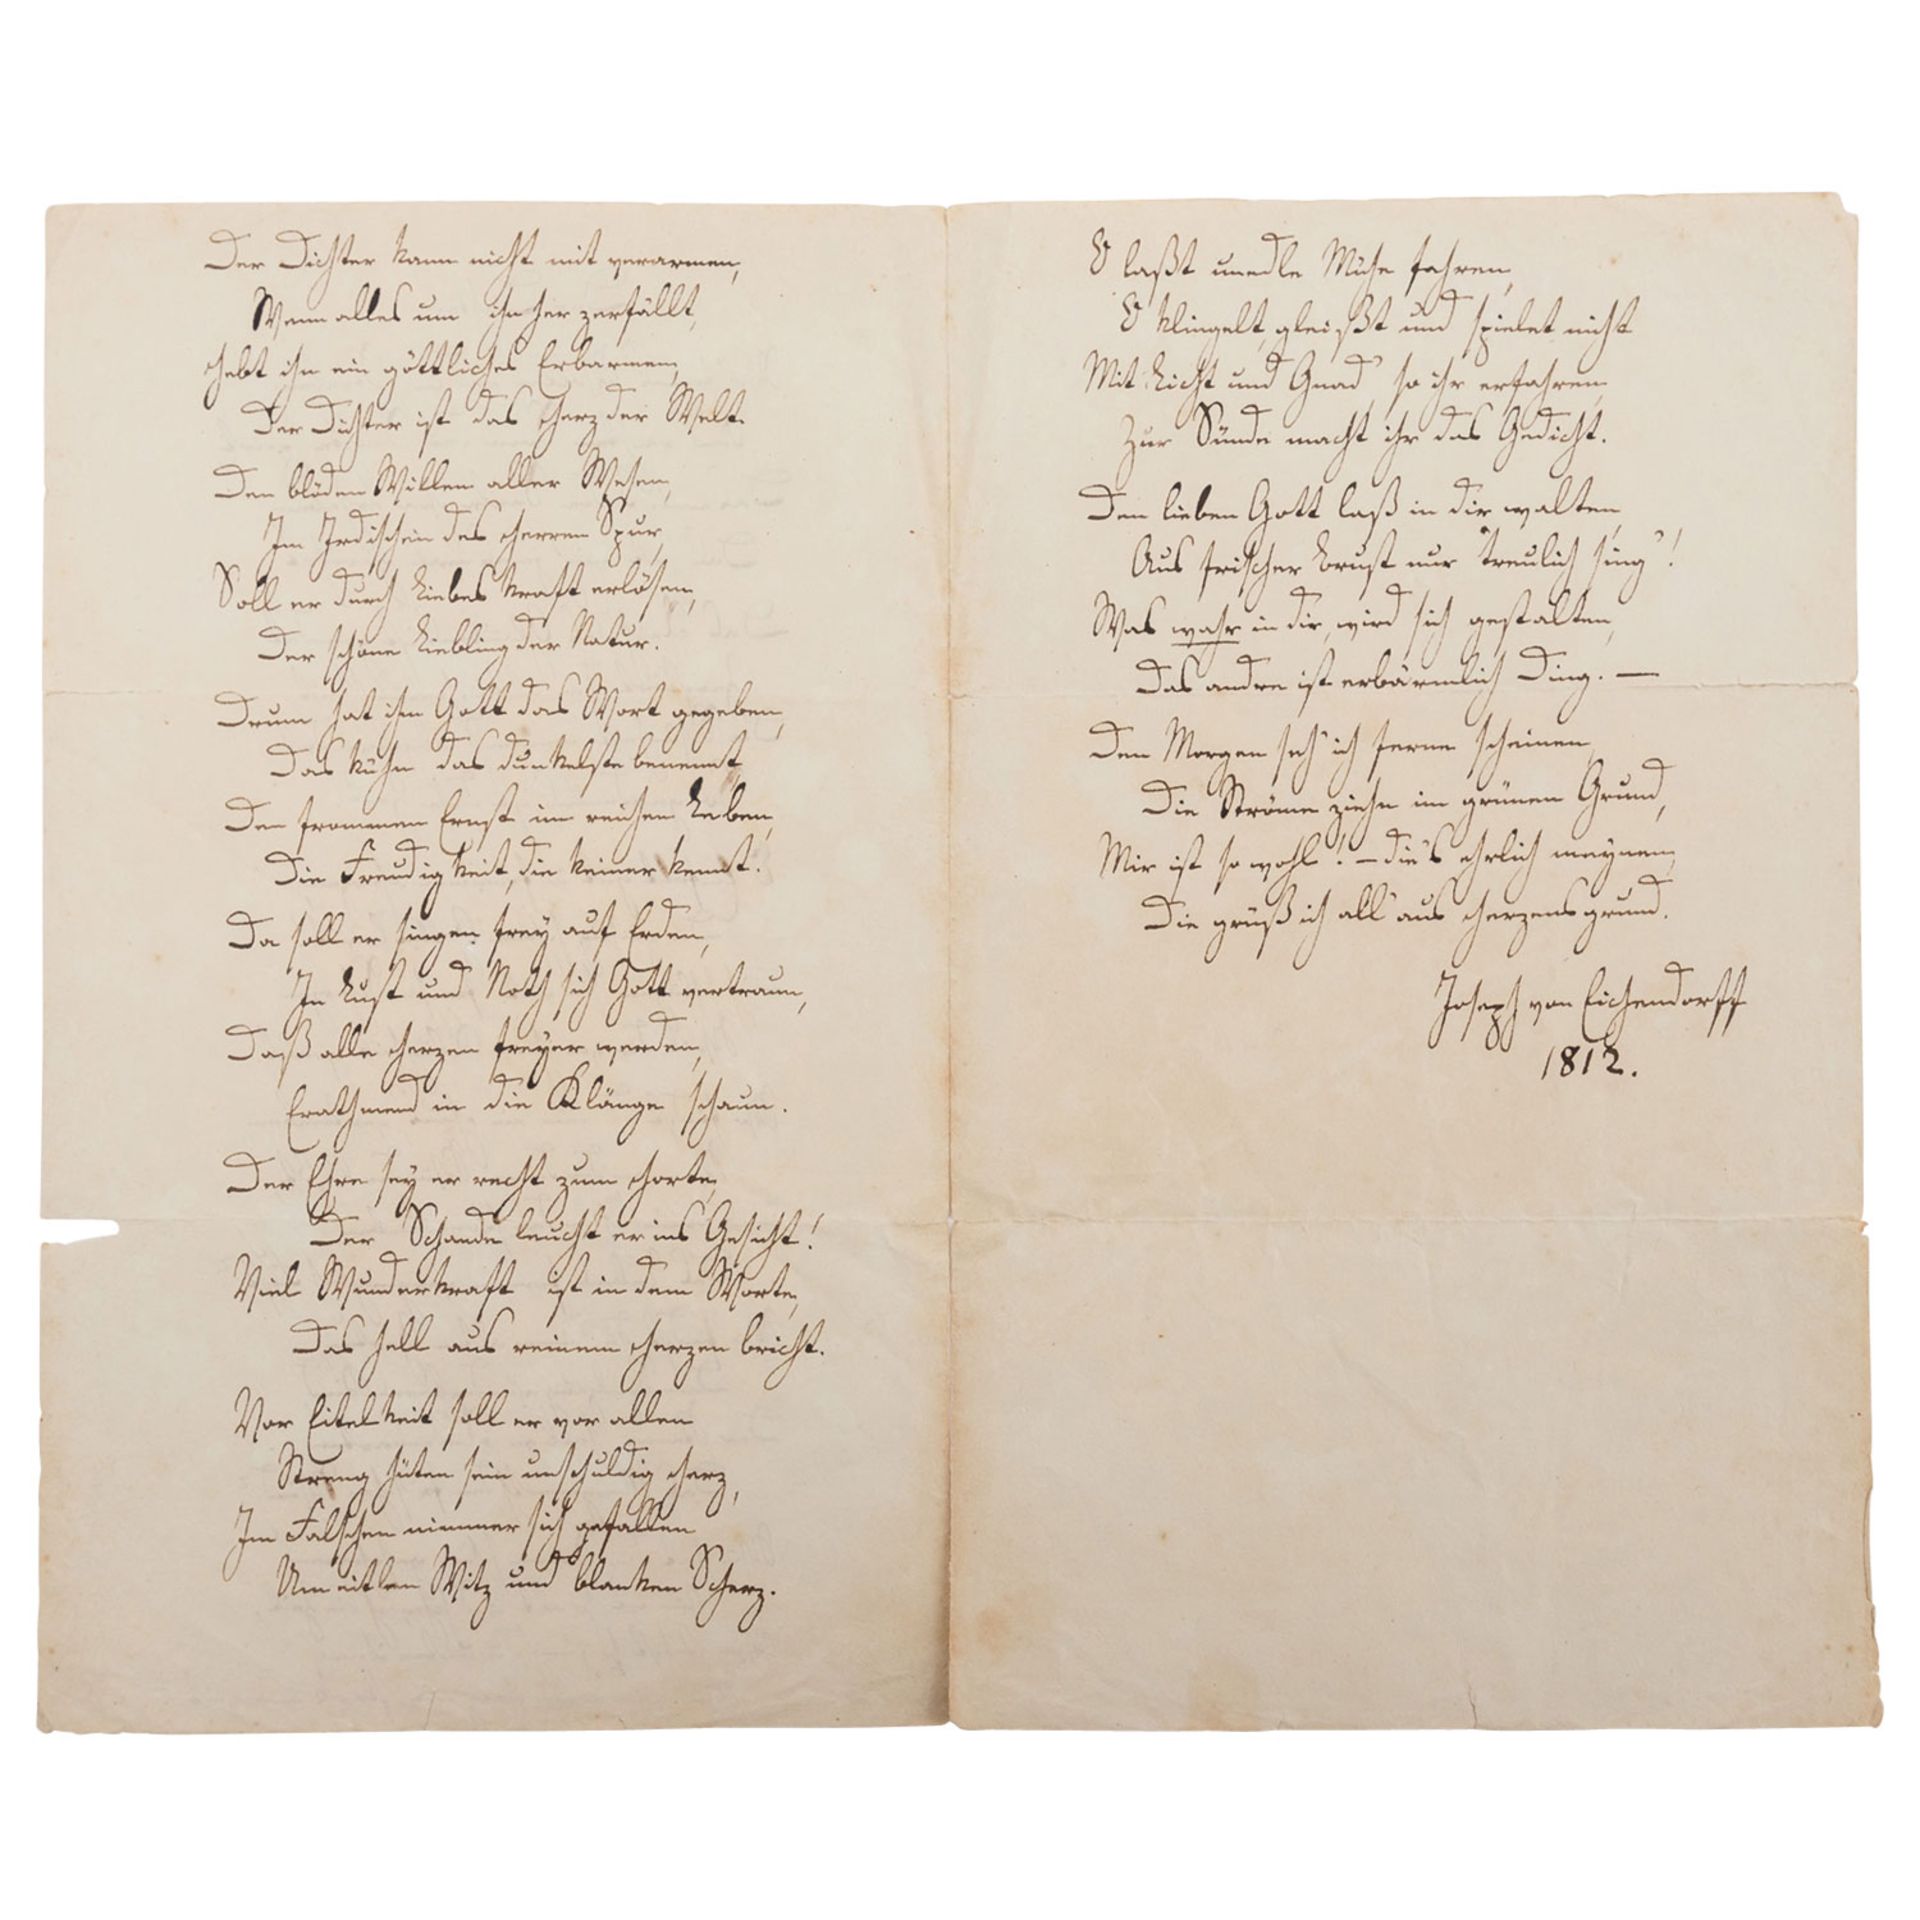 Der Dichter kann nicht mit verarmen,
Wenn alles um ihn her zerfällt,
Hebt ihn ein göttliches Erbarmen,
Der Dichter ist das Herz der Welt.
Den blöden Willen aller Wesen,
Im Irdischen des Herren Spur,
Soll er durch Liebeskraft erlösen,
Der schöne Liebling der Natur.
Drum hat ihm Gott das Wort gegeben,
Das kühn das dunkelste benennt,
Den frommen Ernst im reichen Leben,
Die Freudigkeit, die keiner kennt.
Da soll er singen frey auf Erden,
In Lust und Noth sich Gott vertraun,
Daß alle Herzen freyer werden,
Erathmend in die Klänge schaun.
Der Ehre sey er recht zum Horte,
Der Schande leucht er ins Gesicht!
Viel Wunderkraft ist in dem Worte,
Das hell aus reinem Herzen bricht.
Vor Eitelkeit soll er vor allen
Streng hüten sein unschuldig Herz,
Im Falschen nimmer sich gefallen
Um eitlen Witz und blanken Scherz.
O laßt unedle Mühe fahren,
O klingelt, gleißt und spielet nicht
Mit Licht und Gnad', so ihr erfahren,
Zur Sünde macht ihr das Gedicht.
Den lieben Gott laß in dir walten,
Aus frischer Brust nur treulich sing'!
Was wahr in dir, wird sich gestalten,
Das andre ist erbärmlich Ding. —
Den Morgen seh' ich ferne scheinen,
Die Ströme ziehn im grünen Grund,
Mir ist so wohl! – die's ehrlich meynen,
Die grüß' ich all' aus Herzensgrund.
Joseph von Eichendorff
1812.